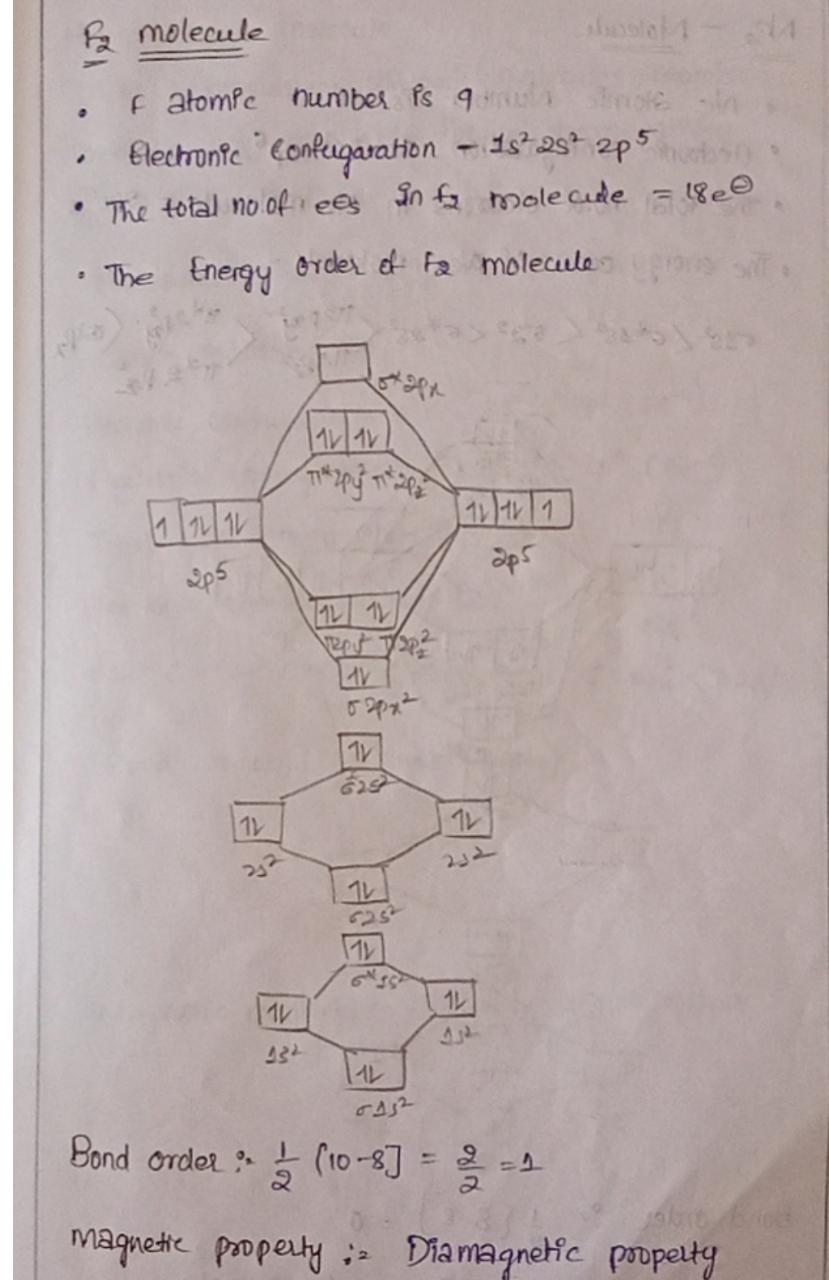 F2 molecule
• F atomic number is 9
• Electronic Confugaration - 1s² 2s² 2p⁵
• The total no.of ees in f2 molecule = 18e⊖
• The Energy order of F2 molecule
σ*2px
1L 1L
π*2py² π*2pz²
1 1L 1L
1L 1L 1
2p⁵
2p⁵
1L 1L
π2py² π2pz²
1L
σ2px²
1L
σ2s²
1L
1L
2s²
2s²
1L
σ2s²
1L
σ*1s²
1L
1L
1s²
1s²
1L
σ1s²
Bond order :- 1/2 [10-8] = 2/2 = 1
Magnetic property :- Diamagnetic property